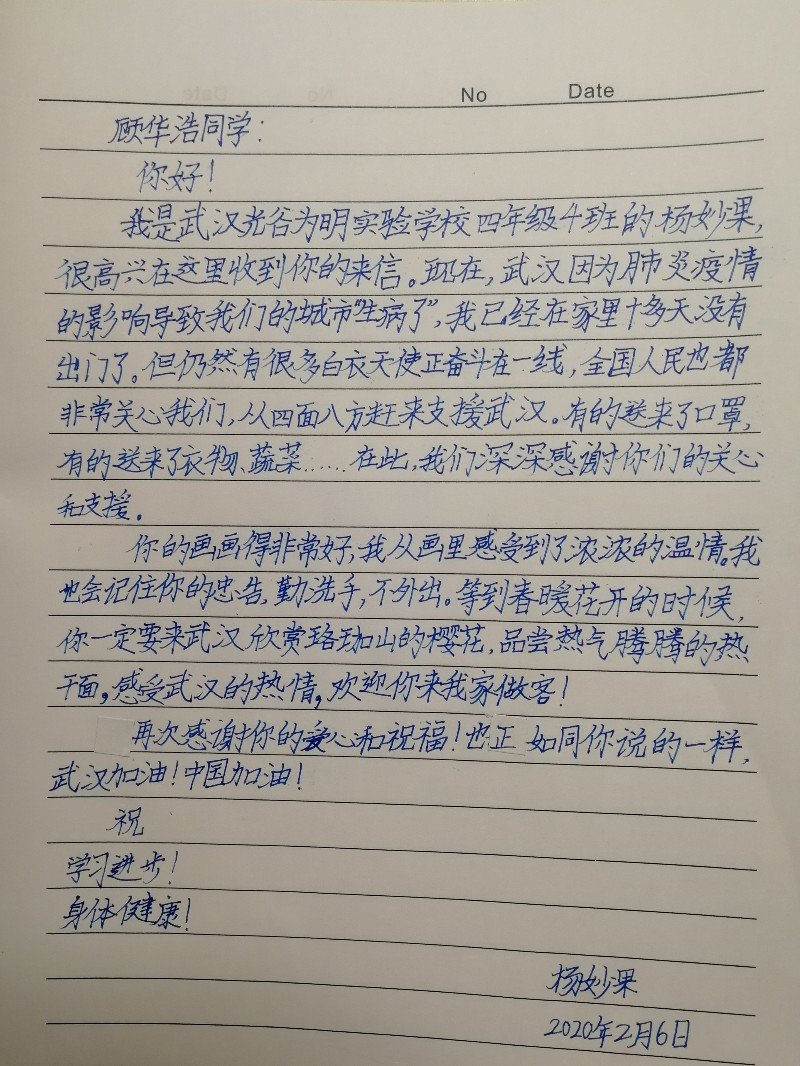 No Date
顾华浩同学：
你好！
我是武汉光谷为明实验学校四年级4班的杨妙果，
很高兴在这里收到你的来信。现在，武汉因为肺炎疫情
的影响导致我们的城市“生病了”，我已经在家里十多天没有
出门了。但仍然有很多白衣天使正奋斗在一线，全国人民也都
非常关心我们，从四面八方赶来支援武汉。有的送来了口罩，
有的送来了衣物、蔬菜……在此，我们深深感谢你们的关心
和支援。
你的画画得非常好，我从画里感受到了浓浓的温情。我
也会记住你的忠告，勤洗手，不外出。等到春暖花开的时候，
你一定要来武汉欣赏珞珈山的樱花，品尝热气腾腾的热
干面，感受武汉的热情，欢迎你来我家做客！
再次感谢你的爱心和祝福！也正如同你说的一样，
武汉加油！中国加油！
祝
学习进步！
身体健康！
杨妙果
2020年2月6日